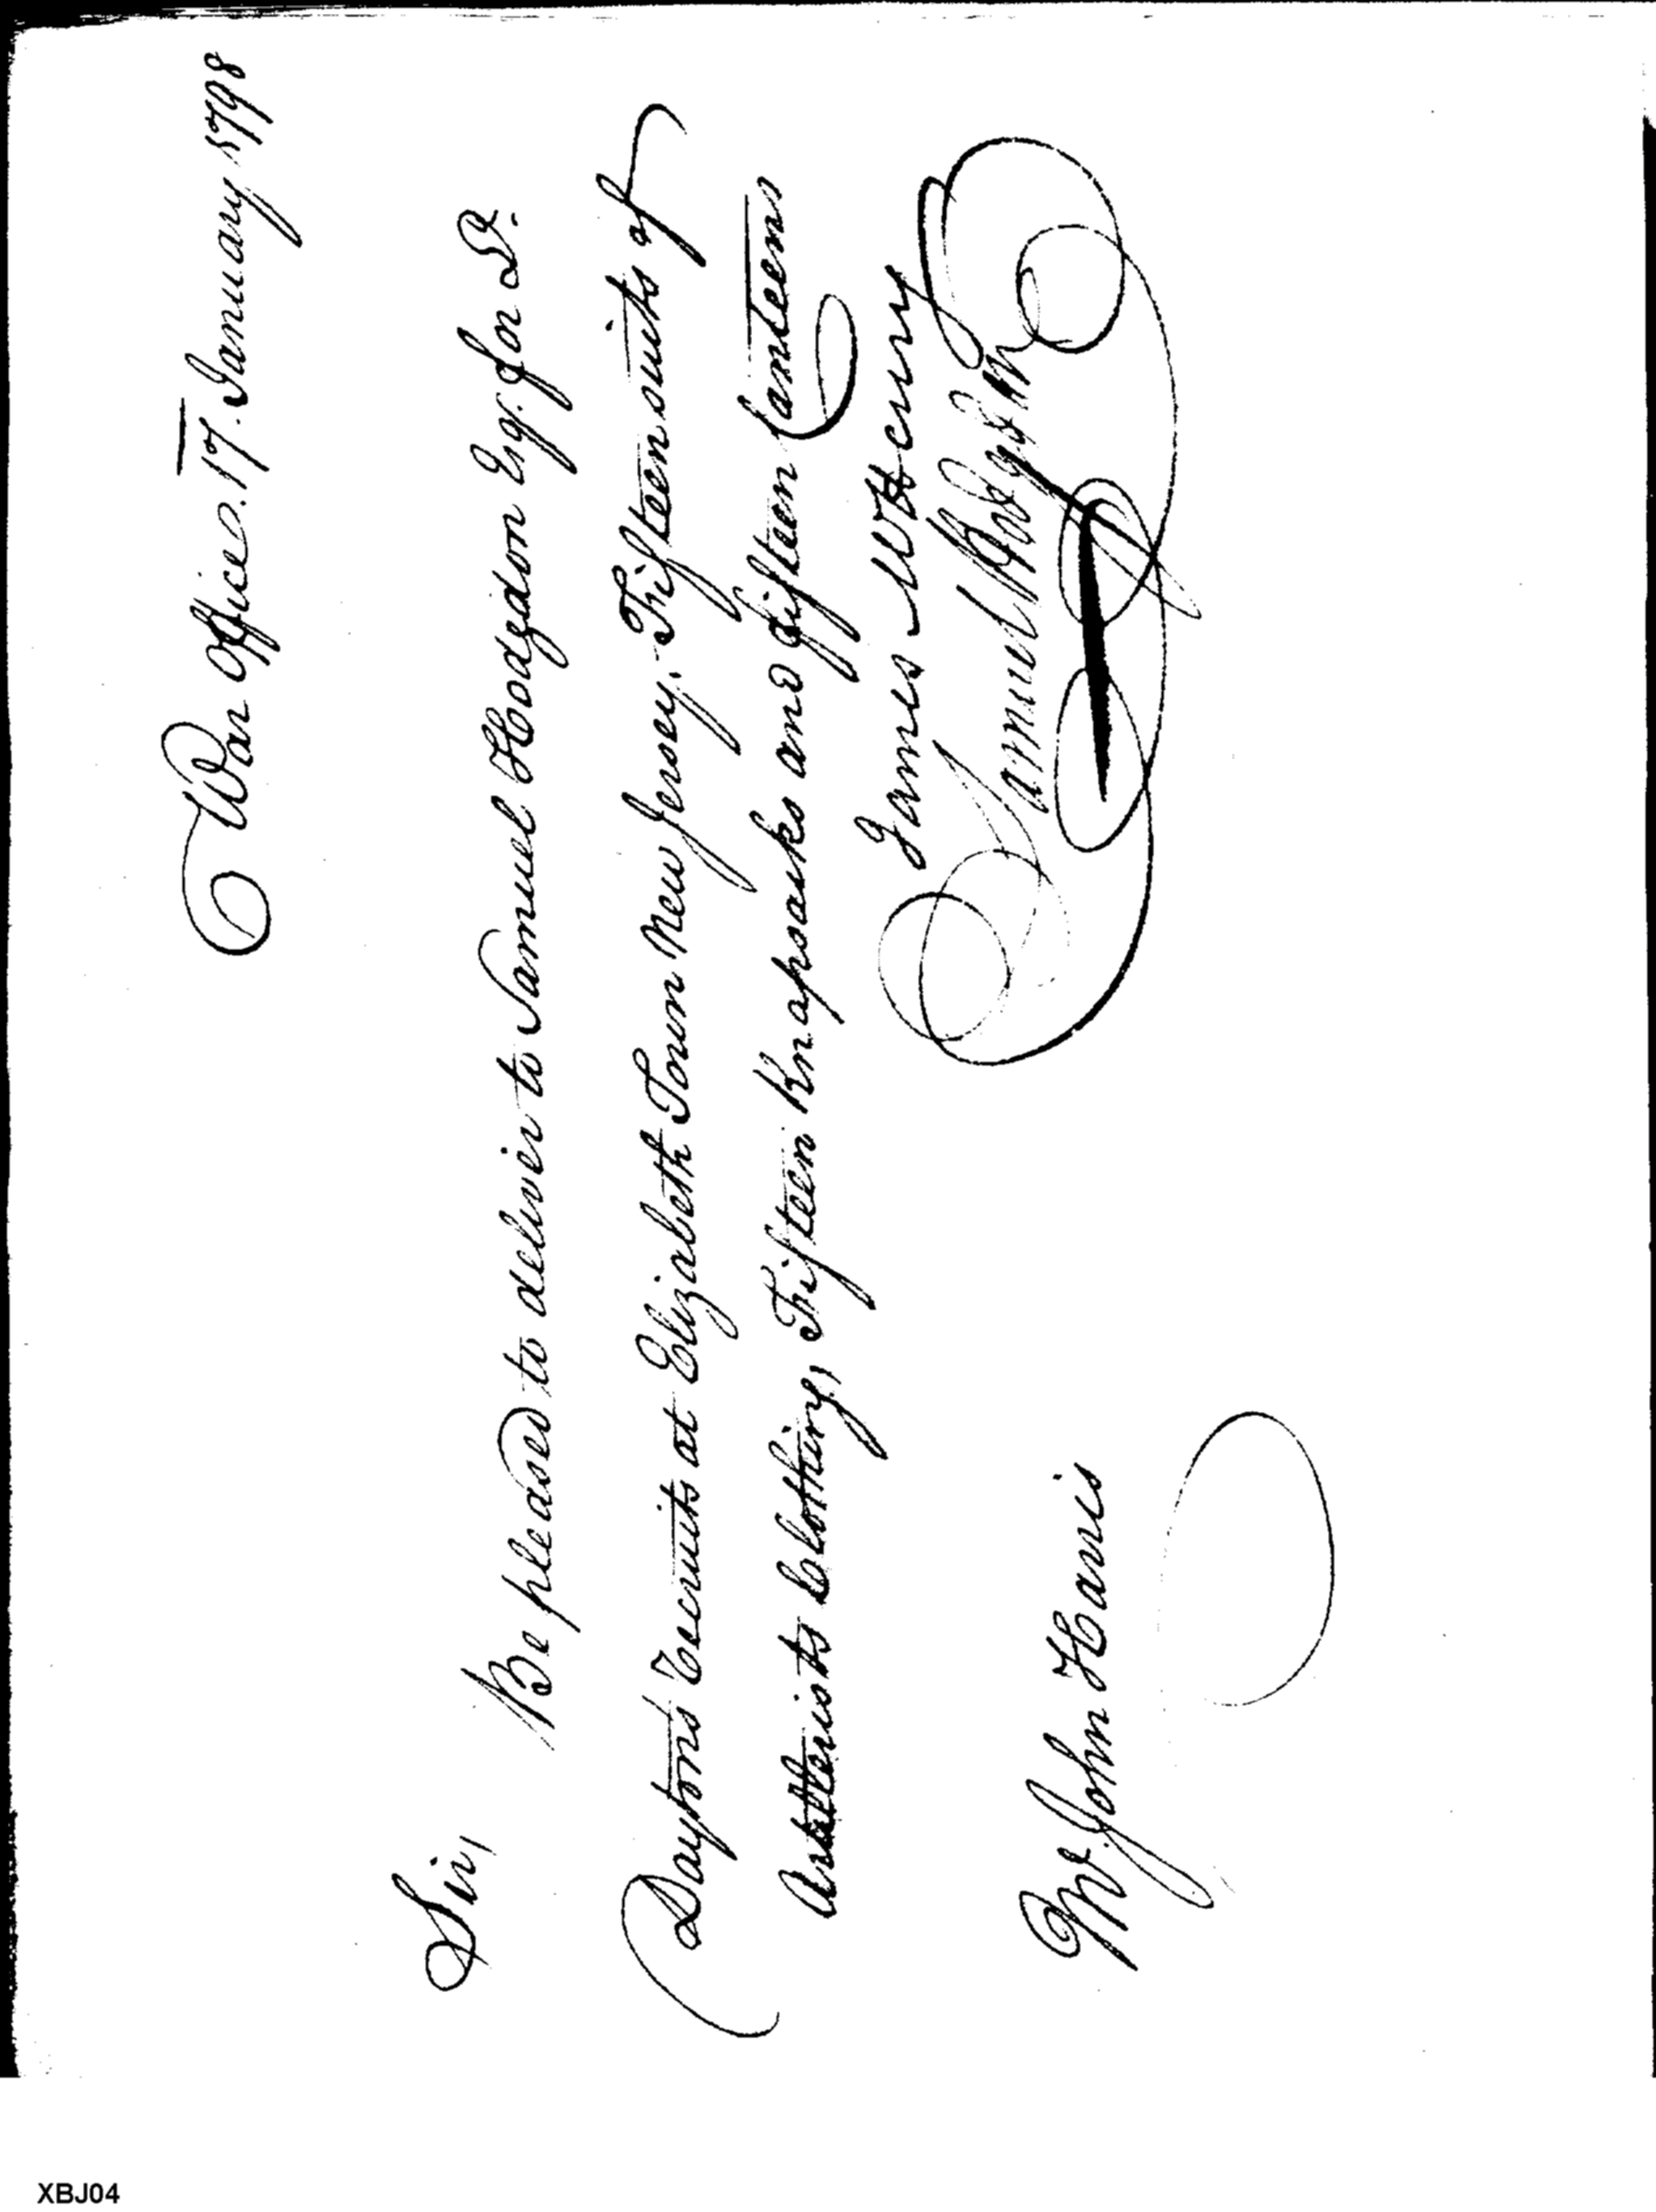 War Office. 17. January 1798
Sir,
Be pleased to deliver to Samuel Hodgdon Esq. for D.
Dayton's Recruits at Elizabeth Town New Jersey. Fifteen suits of
Artillerists Clothing, Fifteen Knapsacks and fifteen Canteens
James McHenry
Samuel Hodgdon
Mr. John Harris
XBJ04